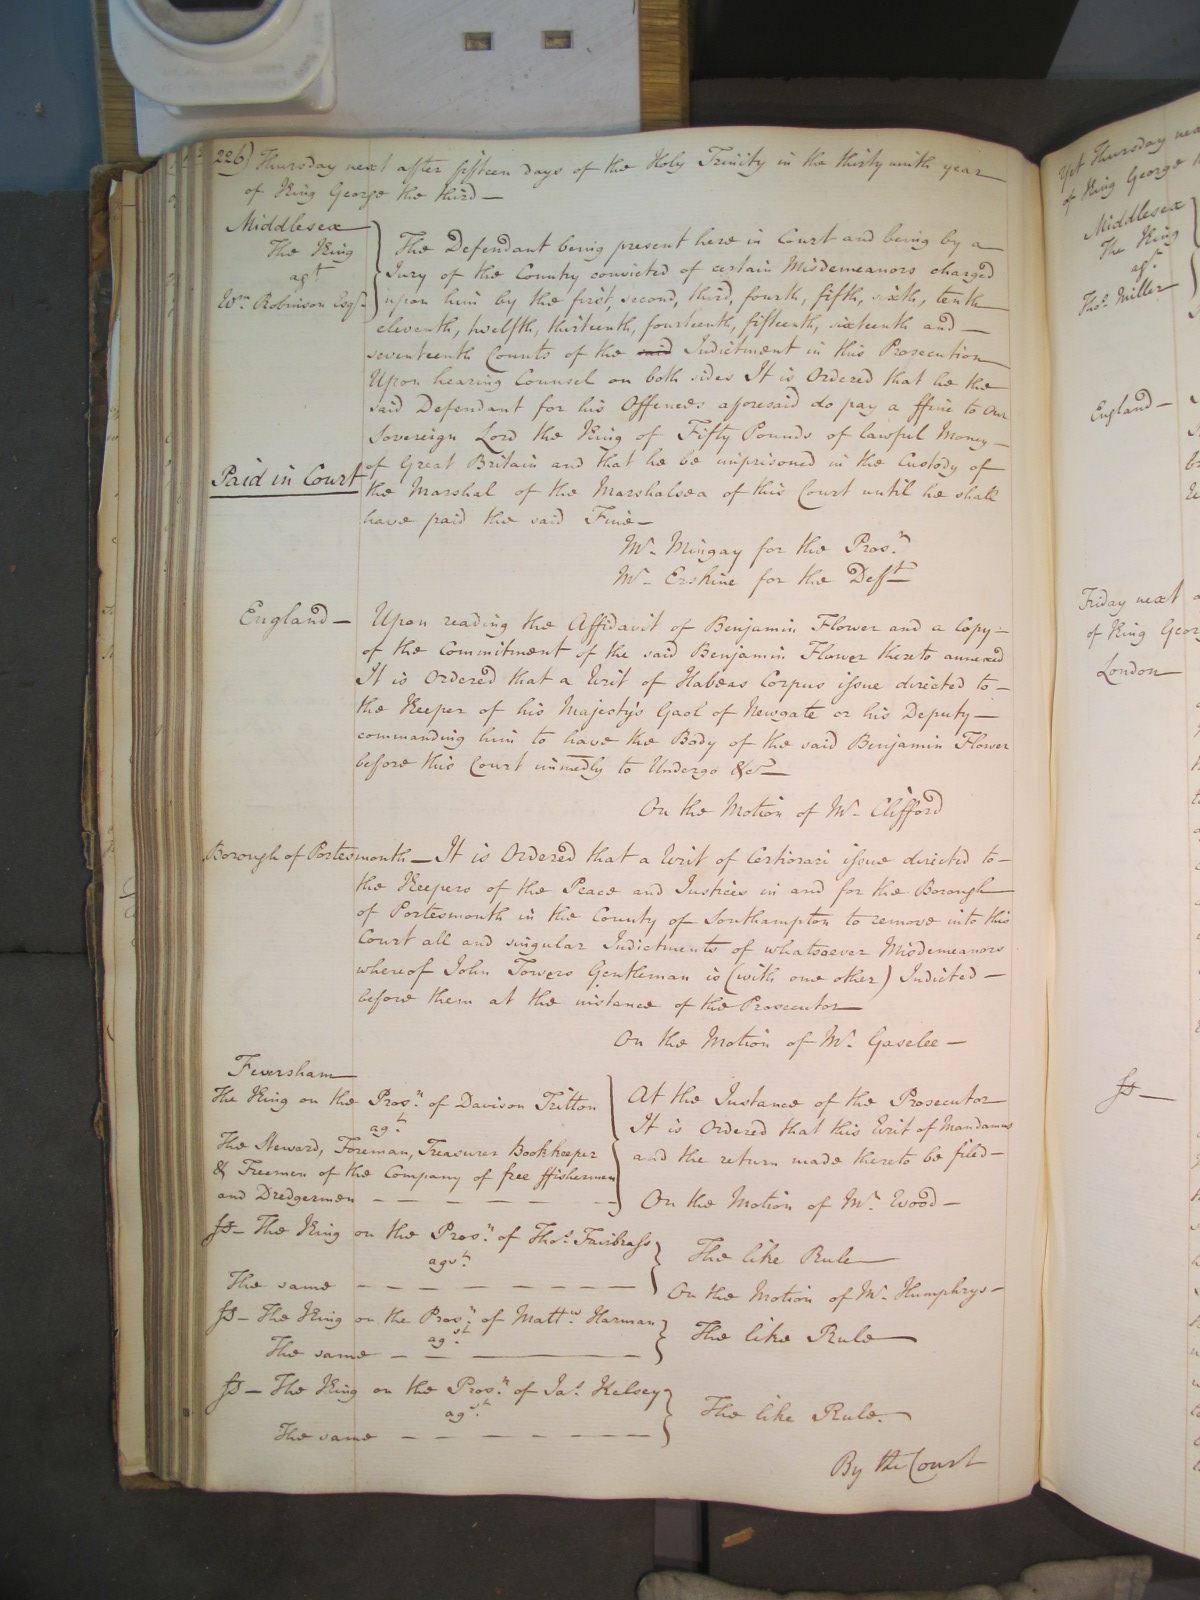 226) Thursday next after fifteen days of the Holy Trinity in the thirty ninth year
of King George the third—
Middlesex
The King
agt
Wm. Robinson Esqr.
The Defendant being present here in Court and being by a
Jury of the Country convicted of certain Misdemeanors charged
upon him by the first, second, third, fourth, fifth, sixth, tenth
eleventh, twelfth, thirteenth, fourteenth, fifteenth, sixteenth and —
seventeenth Counts of the said Indictment in this Prosecution
Upon hearing Counsel on both sides It is Ordered that he the
said Defendant for his Offences aforesaid do pay a ffine to our
Sovereign Lord the King of Fifty Pounds of lawful Money—
Paid in Court
of Great Britain and that he be imprisoned in the Custody of
the Marshal of the Marshalsea of this Court until he shall
have paid the said Fine—
Mr. Mingay for the Prosn.
Mr. Erskine for the Deft—
England— Upon reading the Affidavit of Benjamin Flower and a Copy—
of the Commitment of the said Benjamin Flower thereto annexed
It is Ordered that a Writ of Habeas Corpus issue directed to—
the Keeper of his Majesty's Gaol of Newgate or his Deputy—
commanding him to have the Body of the said Benjamin Flower
before this Court immedly to Undergo &c—
On the Motion of Mr. Clifford
Borough of Portesmouth— It is Ordered that a Writ of Certiorari issue directed to—
the Keepers of the Peace and Justices in and for the Borough
of Portesmouth in the County of Southampton to remove into this
Court all and singular Indictments of whatsoever Misdemeanors
whereof John Towers Gentleman is (with one other) Indicted—
before them at the instance of the Prosecutor—
On the Motion of Mr. Gaselee—
Feversham
The King on the Prosn. of Davison Tritton
agt.
The Steward, Foreman, Treasurer Bookkeeper
& Freemen of the Company of free ffishermen
and Dredgermen — — — — —
At the Instance of the Prosecutor
It is Ordered that this Writ of Mandamus
and the return made thereto be filed—
On the Motion of Mr. Wood—
Ss— The King on the Prosn. of Thos. Fairbrass
agst.
The same — — — — — — —
The like Rule—
On the Motion of Mr. Humphrys—
Ss— The King on the Prosn. of Mattw. Harman
agst.
The same — — ———
The like Rule—
Ss— The King on the Prosn. of Jas. Kelsey
agst.
The same — — — — — —
The like Rule.—
By the Court
Yet Thursday nex
of King George
Middlesex
The King
agt.
Thos. Miller
England—
Friday next
of King Geor
London
Ss—